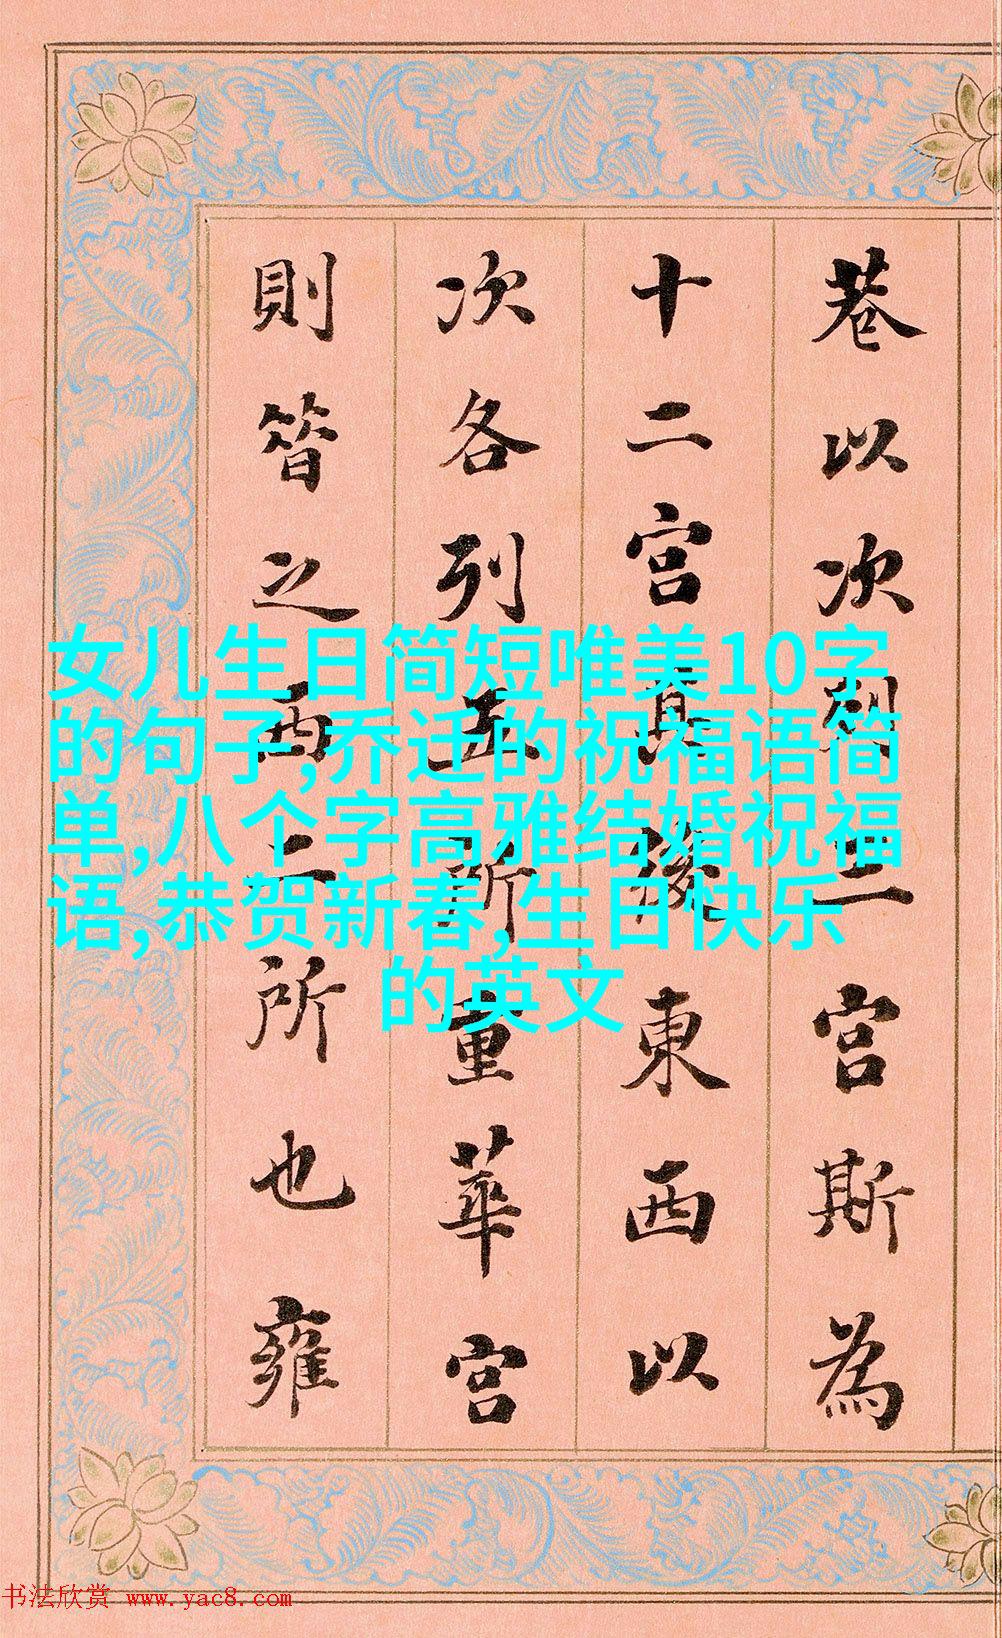 巷以次列三宫斯為
十二宫其後東西以
次各列五所重華宫
則昔之西二所也雍
女儿生日简短唯美10字
的句子,乔迁的祝福语简
单,八个字高雅结婚祝福
语,恭贺新春,生日快乐
的英文
书法欣赏 www.yac8.com